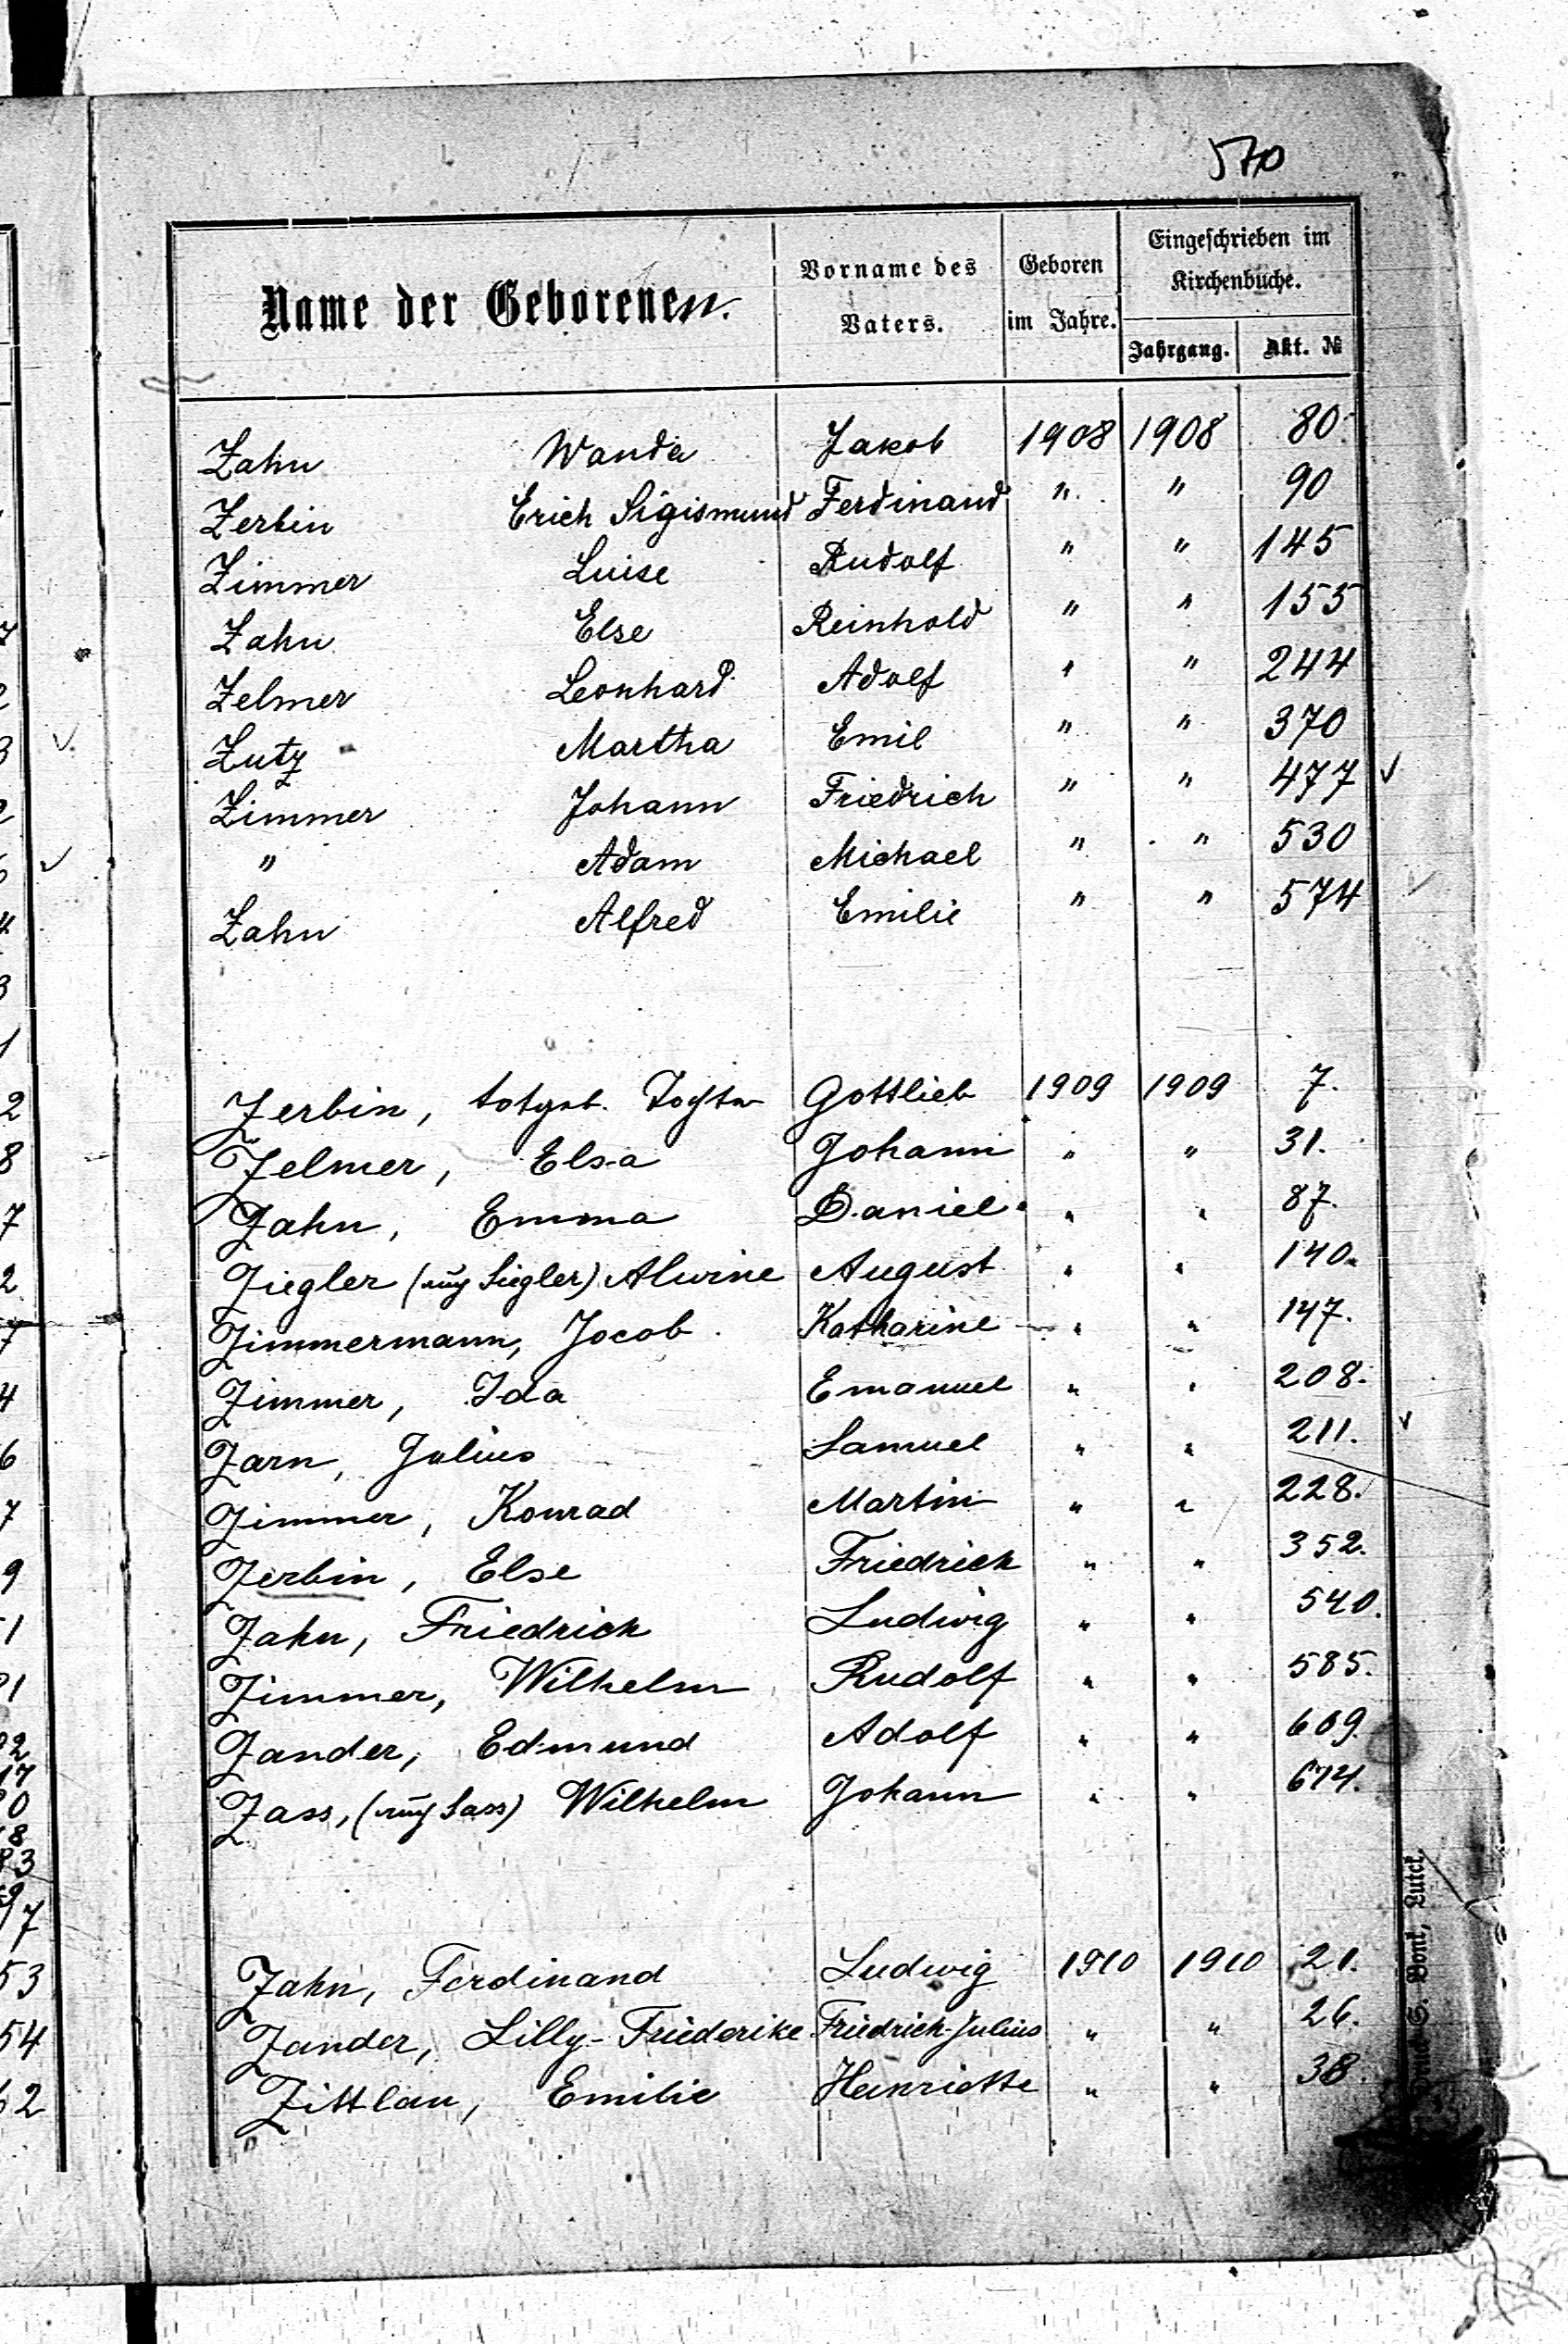 570
Name der Geborenen.
Vorname des Vaters.
Geboren im Jahre.
Eingeschrieben im Kirchenbuche.
Jahrgang. Akt. №
Zahn Wanda Jakob 1908 1908 80.
Zerbin Erich Sigismund Ferdinand " " 90
Zimmer Luise Rudolf " " 145
Zahn Else Reinhold " " 155
Zelmer Leonhard Adolf " " 244
Zutz Martha Emil " " 370
Zimmer Johann Friedrich " " 477 ✓
" Adam Michael " " 530
Zahn Alfred Emilie " " 574
Zerbin, totgeb. Tochter Gottlieb 1909 1909 7.
Zelmer, Elsa Johann " " 31.
Zahn, Emma Daniel " " 87.
Ziegler (auch Siegler) Alwine August " " 140.
Zimmermann, Jocob. Katharine " " 147.
Zimmer, Ida Emanuel " " 208.
Zarn, Julius Samuel " " 211. ✓
Zimmer, Konrad Martin " " 228.
Zerbin, Else Friedrich " " 352.
Zahn, Friedrich Ludwig " " 540.
Zimmer, Wilhelm Rudolf " " 585.
Zander, Edmund Adolf " " 609.
Zass, (auch Sass) Wilhelm Johann " " 674.
Zahn, Ferdinand Ludwig 1910 1910 21.
Zander, Lilly-Friederike Friedrich-Julius " " 26.
Zittlau, Emilie Henriette " " 38.